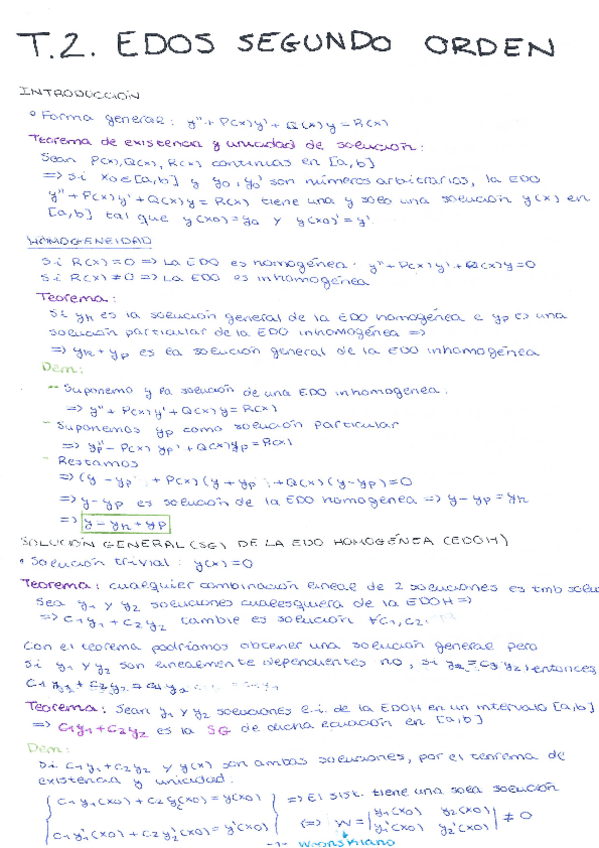 T.2. EDOS SEGUNDO ORDEN
INTRODUCCIÓN
• Forma general: y'' + P(x)y' + Q(x)y = R(x)
Teorema de existencia y unicidad de solución:
Sean P(x), Q(x), R(x) continuas en [a,b]
=> Si x0 ∈ [a,b] y y0, y0' son números arbitrarios, la EDO
y'' + P(x)y' + Q(x)y = R(x) tiene una y solo una solución y(x) en
[a,b] tal que y(x0) = y0 y y(x0)' = y'.
HOMOGENEIDAD
Si R(x) = 0 => La EDO es homogénea: y'' + P(x)y' + Q(x)y = 0
Si R(x) ≠ 0 => La EDO es inhomogénea
Teorema:
Si yh es la solución general de la EDO homogénea e yp es una
solución particular de la EDO inhomogénea =>
=> yh + yp es la solución general de la EDO inhomogénea
Dem:
- Suponemo y la solución de una EDO inhomogénea.
=> y'' + P(x)y' + Q(x)y = R(x)
- Suponemos yp como solución particular
=> yp'' - P(x) yp' + Q(x)yp = R(x)
- Restamos
=> (y - yp) + P(x)(y + yp) + Q(x)(y-yp) = 0
=> y-yp es solución de la EDO homogénea => y-yp = yh
=> y = yh + yp
SOLUCIÓN GENERAL (SG) DE LA EDO HOMOGÉNEA (EDOH)
• Solución trivial: y(x) = 0
Teorema: cualquier combinación lineal de 2 soluciones es tmb solu
Sea y1 y y2 soluciones cualesquiera de la EDOH =>
=> C1y1 + C2y2 también es solución ∀C1, C2.
Con el teorema podríamos obtener una solución general pero
si y1 y y2 son linealmente dependientes no, si entonces
Teorema: Sean y1 y y2 soluciones l.i. de la EDOH en un intervalo [a,b]
=> C1y1 + C2y2 es la SG de dicha ecuación en [a,b]
Dem:
Si C1y1 + C2y2 y y(x) son ambas soluciones, por el teorema de
existencia y unicidad.
{ C1y1(x0) + C2y2(x0) = y(x0) } => El sist. tiene una sola solución
{ C1y1'(x0) + C2y2'(x0) = y'(x0) } <=> W = | y1(x0) y2(x0) | y1'(x0) y2'(x0) | ≠ 0
-1- Wronskiano